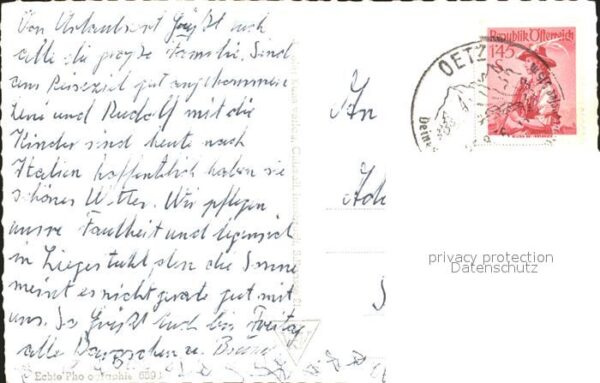 Von Urlaubsort Grüßt euch
alle die große Familie. Sind
am Reiseziel gut angekommen
Leni und Rudolf mit die
Kinder sind heute nach
Italien hoffentlich haben sie
schönes Wetter. Wir pflegen
unsre Faulheit und
in Liegestuhl den die Sonne
meint es nicht gerate gut mit
uns. So Grüßt euch bis Freitag
alle
An
Republik Österreich
1.45
S
OETZ
privacy protection
Datenschutz
Echte Photographie